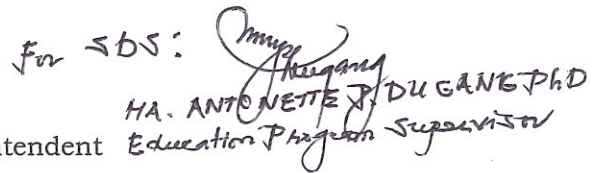 For SDS:
MA. ANTONETTE P. DUGANG PhD
ntendent Education Program Supervisor